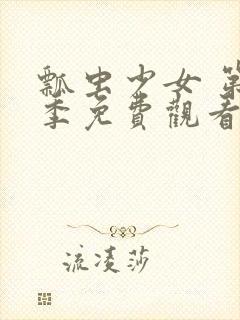 瓢虫少女 第
季免費觀看
流凌莎